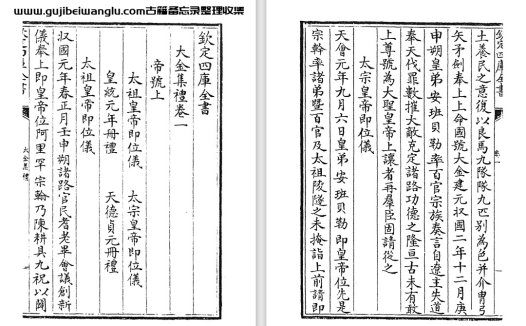 www.gujibeiwanglu.com古籍备忘录整理收集
欽定四庫全書
大金集禮卷一
帝號上
太祖皇帝即位儀 太宗皇帝即位儀
皇統元年冊禮 天德貞元冊禮
太祖皇帝即位儀
收國元年春正月壬申朔諸路官民耆老畢會議創新
儀奉上即皇帝位阿里罕宗翰乃陳耕具九祝以闢
大金集禮
欽定四庫全書 卷一
土養民之意復以良馬九隊隊九匹別為色并介冑弓
矢矛劍奉上上命國號大金建元收國二年十二月庚
申朔皇弟安班貝勒率百官宗族奏言自遼主失道
奉天伐罪數摧大敵克定諸路功德之隆亘古未有敢
上尊號為大聖皇帝上讓者再羣臣固請從之
太宗皇帝即位儀
天會元年九月六日皇弟安班貝勒即皇帝位先是
宗幹率諸弟暨百官及太祖陵隧之未掩詣上前請即